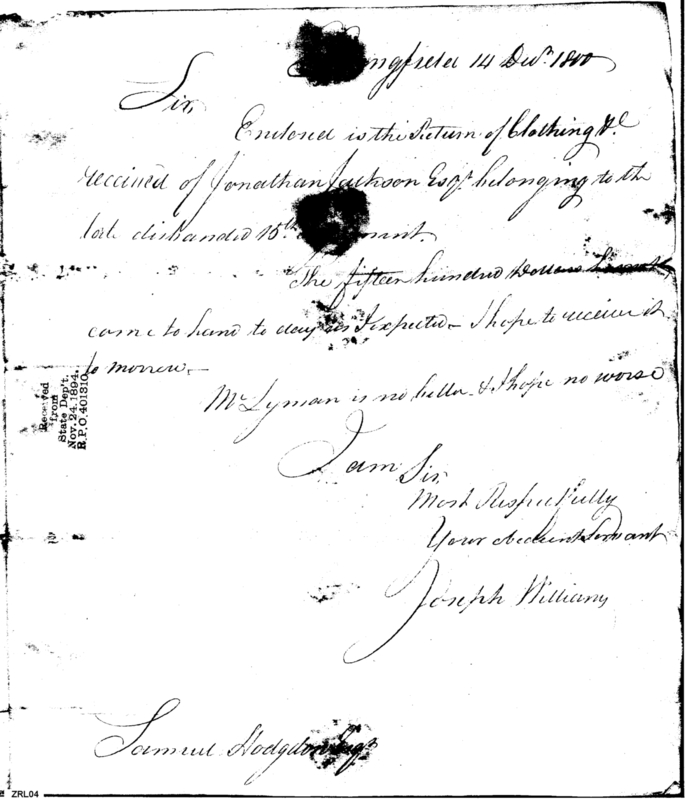 14 Decr. 1800
Sir,
Enclosed is the Return of Clothing &c
received of Jonathan Jackson Esqr. belonging to the
late disbanded 15th
The fifteen hundred Dollars
come to hand to day as I expected - I hope to receive it
to morrow. -
Mr Lyman is no better & I hope no worse
I am Sir,
Most Respectfully
Your obedient Servant
Joseph Williams
Samuel Hodgdon Esqr.
Received
from
State Dep't.
Nov. 24. 1894.
R.P.O. 401310.
ZRL04